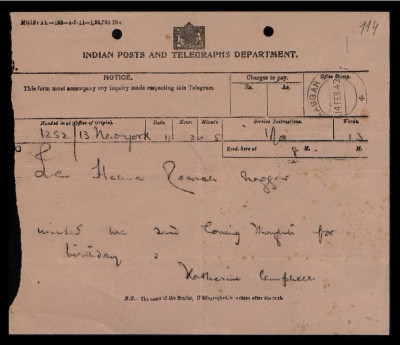 114
INDIAN POSTS AND TELEGRAPHS DEPARTMENT.
NOTICE.
This form must accompany any inquiry made respecting this Telegram.
Charges to pay.
Rs. As.
Office Stamp.
NAGGAR
14 FEB 42
Handed in at (Office of Origin). Date. Hour. Minute. Service Instructions. Words.
1252/13 Newyork 11 20 5 13
Recd. here at H. M.
Helena Roerich Naggar
united we send loving thoughts for
birthday
Katherine Campbell
N.B. The name of the Sender, if telegraphed, is written after the text.